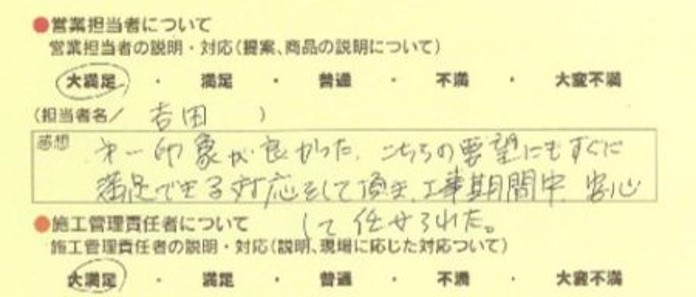 ●営業担当者について
営業担当者の説明・対応(提案、商品の説明について)
大満足 ・ 満足 ・ 普通 ・ 不満 ・ 大変不満
(担当者名/ 吉田 )
感想
第一印象が良かった。こちらの要望にもすぐに
満足できる対応をして頂き、工事期間中、安心
して任せられた。
●施工管理責任者について
施工管理責任者の説明・対応(説明、現場に応じた対応ついて)
大満足 ・ 満足 ・ 普通 ・ 不満 ・ 大変不満